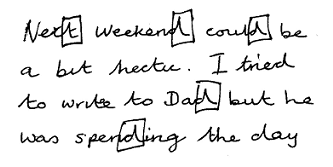 Next weekend could be
a bit hectic. I tried
to write to Dad but he
was spending the day